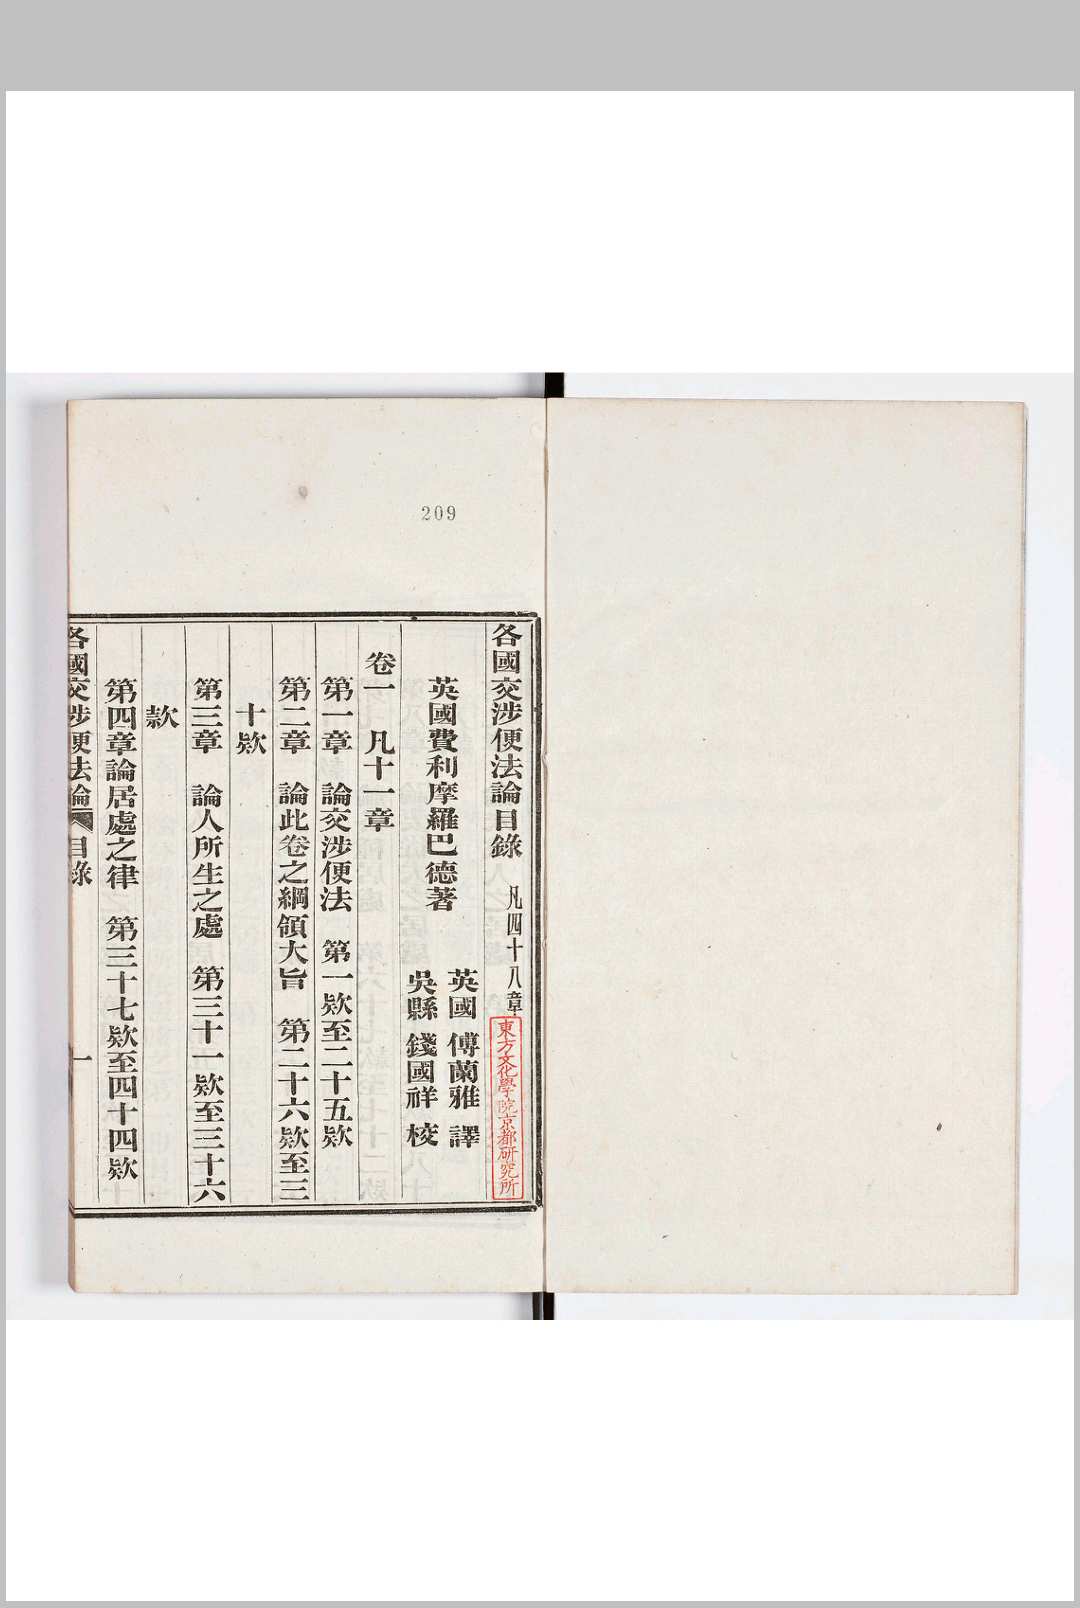 209
各國交涉便法論目錄　凡四十八章
東方文化學院京都研究所
英國費利摩羅巴德著
英國　傅蘭雅　譯
吳縣　錢國祥　校
卷一　凡十一章
第一章　論交涉便法　第一欵至二十五欵
第二章　論此卷之綱領大旨　第二十六欵至三
十欵
第三章　論人所生之處　第三十一欵至三十六
款
第四章論居處之律　第三十七欵至四十四欵
各國交涉便法論　目錄　一